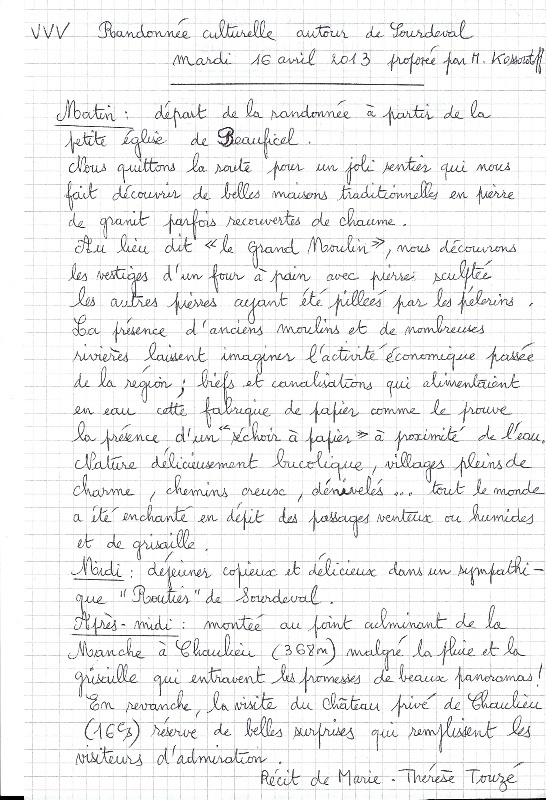 VVV Randonnée culturelle autour de Sourdeval
mardi 16 avril 2013 proposée par M.
Matin : départ de la randonnée à partir de la
petite église de Beauficel.
Nous quittons la route pour un joli sentier qui nous
fait découvrir de belles maisons traditionnelles en pierre
de granit parfois recouvertes de chaume.
Au lieu dit "le Grand Moulin", nous découvrons
les vestiges d'un four à pain avec pierre sculptée
les autres pierres ayant été pillées par les pélerins.
La présence d'anciens moulins et de nombreuses
rivières laissent imaginer l'activité économique passée
de la région ; biefs et canalisations qui alimentaient
en eau cette fabrique de papier comme le prouve
la présence d'un "séchoir à papier" à proximité de l'eau.
Nature délicieusement bucolique, villages pleins de
charme, chemins creux, dénivelés ... tout le monde
a été enchanté en dépit des passages venteux ou humides
et de grisaille.
Midi : déjeuner copieux et délicieux dans un sympathi-
que "Routier" de Sourdeval.
Après-midi : montée au point culminant de la
Manche à Chaulieu (368m) malgré la pluie et la
grisaille qui entravent les promesses de beaux panoramas!
En revanche, la visite du château privé de Chaulieu
(16è s) réserve de belles surprises qui remplissent les
visiteurs d'admiration.
Récit de Marie-Thérèse Touzé